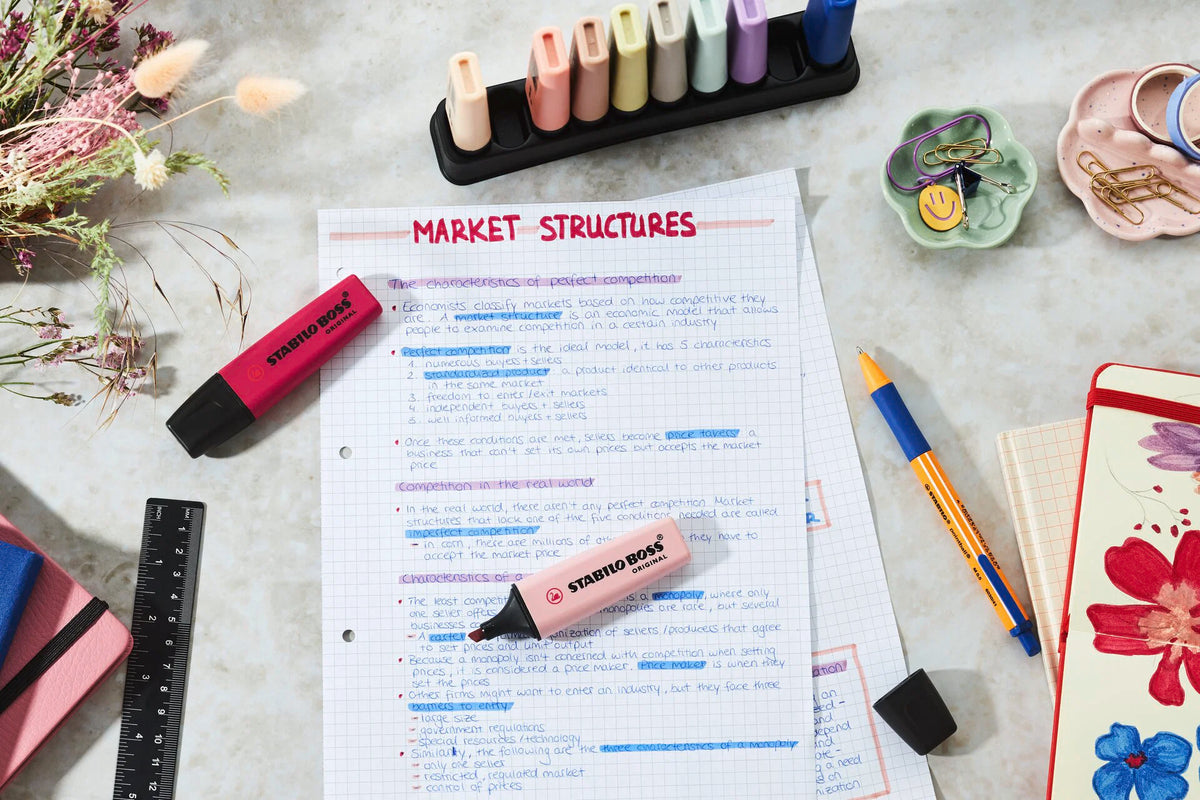 MARKET STRUCTURES
The characteristics of perfect competition
• Economists classify markets based on how competitive they
are. A market structure is an economic model that allows
people to examine competition in a certain industry
• Perfect competition is the ideal model, it has 5 characteristics
1. numerous buyers + sellers
2. standardized product: a product identical to other products
in the same market
3. freedom to enter/exit markets
4. independent buyers + sellers
5. well informed buyers + sellers
• Once these conditions are met, sellers become price takers: a
business that can't set its own prices but accepts the market
price
Competition in the real world
• In the real world, there aren't any perfect competition. Market
structures that lack one of the five conditions needed are called
imperfect competition
- in corn, there are millions of they have to
accept the market price
Characteristics of a
• The least is a monopoly, where only
one seller offers monopolies are rare, but several
businesses
- A cartel of sellers/producers that agree
to set prices and limit output
• Because a monopoly isn't concerned with competition when setting
prices, it is considered a price maker. Price maker is when they
set the prices
• Other firms might want to enter an industry, but they face three
barriers to entry
- large size
- government regulations
- special resources/technology
• Similarly, the following are the three characteristics of a monopoly
- only one seller
- restricted, regulated market
- control of prices
STABILO BOSS®
ORIGINAL
STABILO BOSS®
ORIGINAL
STABILO pointball
INCH
MM
1
2
3
4
5
1
2
3
4
5
6
7
8
9
10
11
12
on
and
depend
and
a need
on
nization